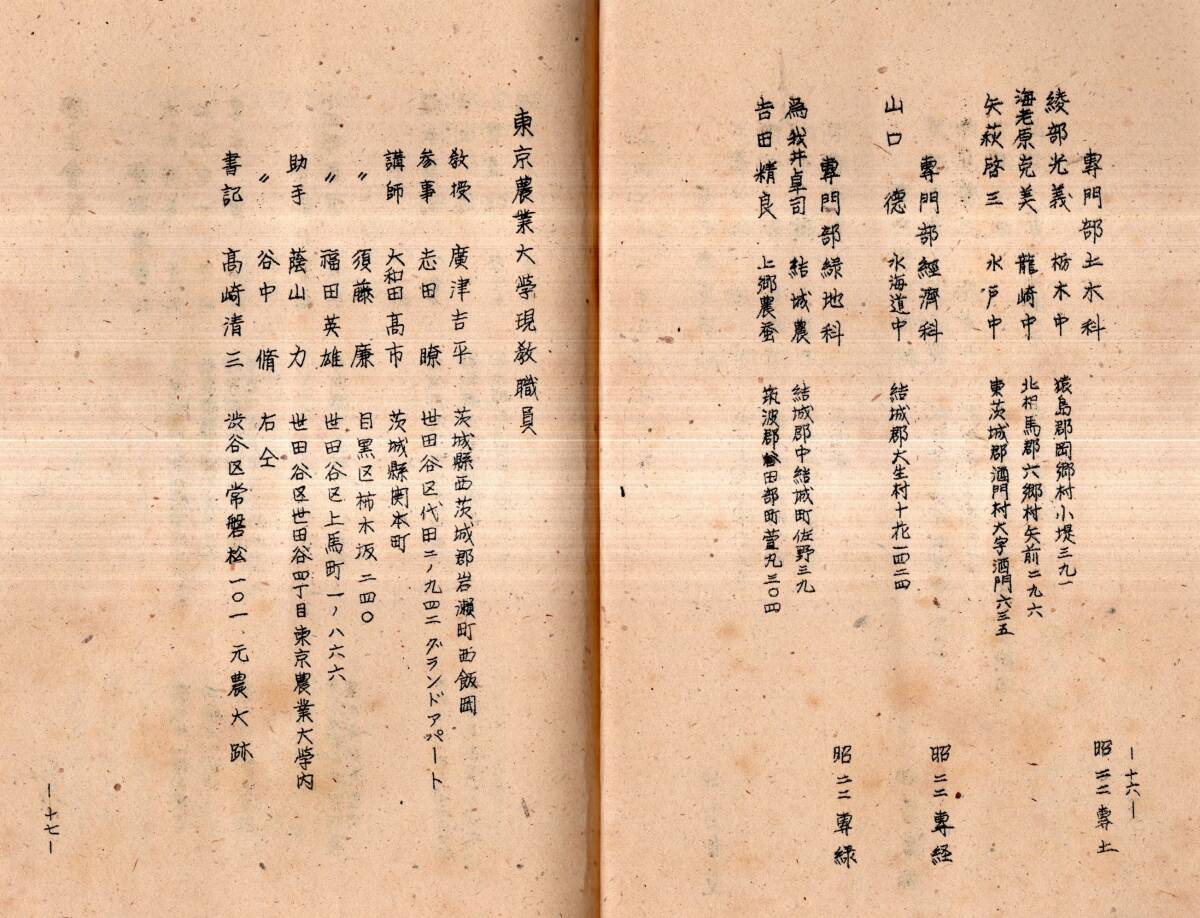 專門部土木科
綾部光義 栃木中 猿島郡岡郷村小堤三九一
海老原克美 龍崎中 北相馬郡六郷村矢前二九六
矢萩啓三 水戸中 東茨城郡酒門村大字酒門六三五
專門部經濟科
山口 德 水海道中 結城郡大生村十花一四二四
專門部緑地科
為我井卓司 結城農 結城郡中結城町佐野三九
吉田精良 上郷農蚕 筑波郡谷田部町萱丸三〇四
昭二二專土
昭二二專経
昭二二專緑
―十六―
東京農業大學現教職員
教授 廣津吉平 茨城縣西茨城郡岩瀬町西飯岡
参事 志田 瞭 世田谷区代田二ノ九四二 グランドアパート
講師 大和田高市 茨城縣関本町
〃 須藤 廉 目黒区柿木坂二四〇
〃 福田英雄 世田谷区上馬町一ノ八六六
助手 蔭山 力 世田谷区世田谷四丁目東京農業大學内
〃 谷中 脩 右仝
書記 髙崎清三 渋谷区常磐松一〇一 元農大跡
―十七―